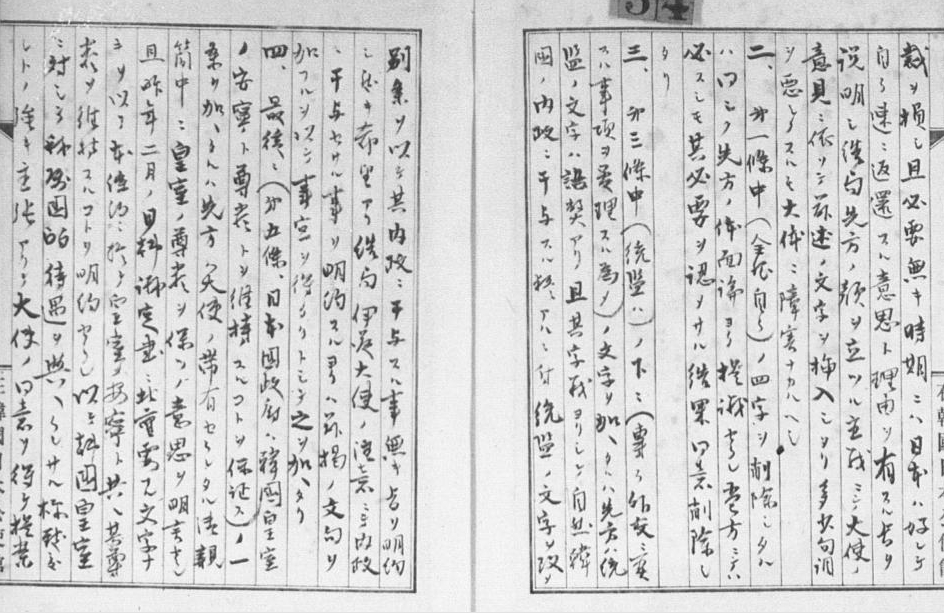 54
裁ヲ損シ且必要無キ時期ニハ日本ハ好シテ
自ラ速ニ返還スル意思ト理由ヲ有スル旨ヲ
説明シ結局先方ノ顔ヲ立ツル主義ニテ大使ノ
意見ニ依リテ前述ノ文字ヲ挿入シタリ多少句調
ヲ悪クスルモ大体ニ障害ナカルヘシ
二、第一條中(全然自ラ)ノ四字ヲ削除シタル
ハ同シク先方ノ体面論ヨリ提議セラレ当方ニテハ
必スシモ其必要ヲ認メサル結果同意削除シ
タリ
三、第三條中(統監ハ)ノ下ニ(専ラ外交ニ
スル事項ヲ管理スル為メ)ノ文字ヲ加ヘタルハ先方ハ統
監ノ文字ハ語弊アリ且其字義ヨリシテ自然韓
國ノ内政ニ干与スル疑アルニ付統監ノ文字ヲ改メ
別条ヲ以テ其内政ニ干与スル事無キ旨ヲ明約
シ希望アリ結局伊藤大使ノ注意ニテ内政
ニ干与セサル事ヲ明約スルヨリハ前掲ノ文句ヲ
加フルヲ以テ事宜ヲ得タリトシテ之ヲ加ヘタリ
四、最後ニ(第五條、日本國政府ハ韓國皇室
ノ安寧ト尊嚴トヲ維持スルコトヲ保証ス)ノ一
条ヲ加ヘタルハ先方ハ大使ノ帯有セラレタル御親
簡中ニ皇室ノ尊嚴ヲ保ツノ意思ヲ明言セラレ
且昨年二月ノ日韓議定書ニモ重要ノ文字ア
ルヲ以テ本條約ニ於テ皇室ノ安寧ト共ニ其尊
嚴ヲ維持スルコトヲ明約セラレ以テ韓國皇室
ニ対シ國的待遇ヲ與ヘラレサル様致度
シトノ強キ主張アリテ大使ノ同意ヲ得テ提案